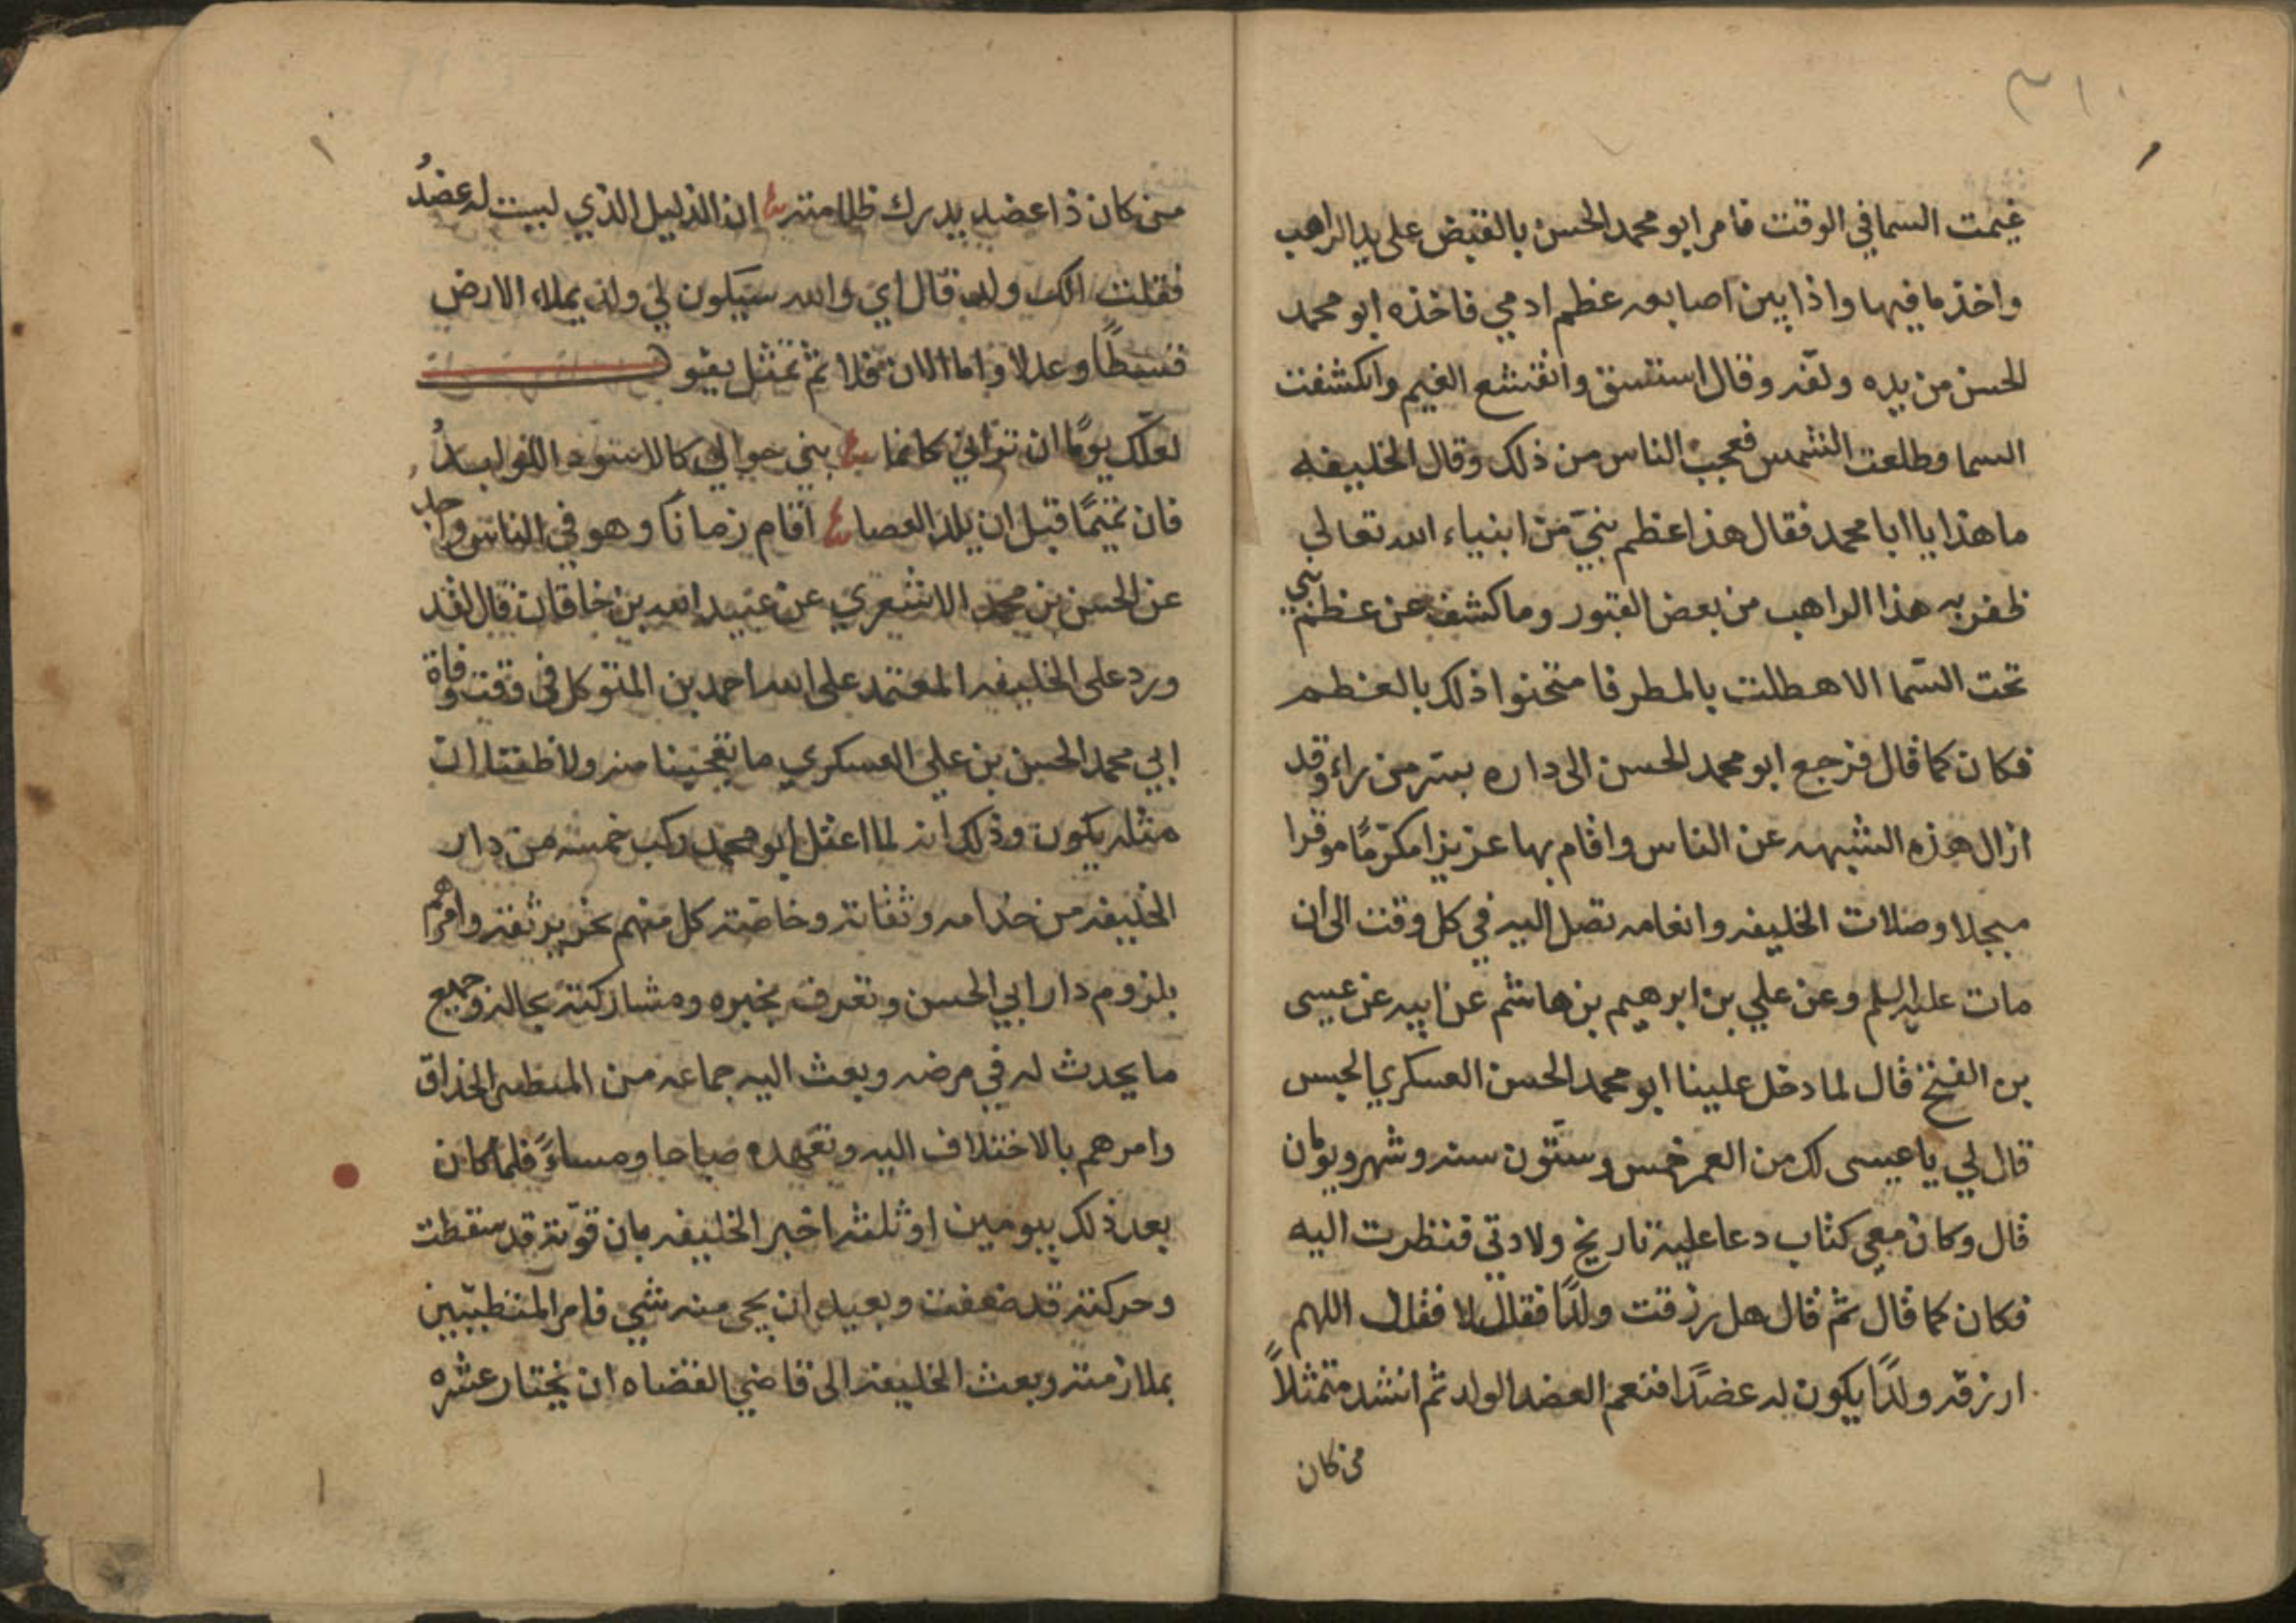 ٣١٠
غيمت السما في الوقت فامر ابو محمد الحسن بالقبض على يد الراهب
واخذ ما فيها واذا بين اصابعه عظم ادمي فاخذه ابو محمد
الحسن من يده ولفه وقال استسق وانقشع الغيم وانكشفت
السما وطلعت الشمس فعجب الناس من ذلك وقال الخليفه
ما هذا يا ابا محمد فقال هذا عظم نبيّ من انبياء الله تعالى
ظفر به هذا الراهب من بعض القبور وما كشف عن عظم نبي
تحت السّما الا هطلت بالمطر فامتحنوا ذلك بالعظم
فكان كما قال فرجع ابو محمد الحسن الى داره بسر من راء وقد
ازال هذه الشبهه عن الناس واقام بها عزيزا مكرّمًا موقرا
مبجلا وصلات الخليفه وانعامه تصل اليه في كل وقت الى ان
مات عليه السلم وعن علي بن ابرهيم بن هاشم عن ابيه عن عيسى
بن الفتح قال لما دخل علينا ابو محمد الحسن العسكري الحبس
قال لي يا عيسى لك من العمر خمس وستّون سنه وشهر ويومان
قال وكان معي كتاب دعا عليه تاريخ ولادتي فنظرت اليه
فكان كما قال ثم قال هل رزقت ولدًا فقال لا فقال اللهم
ارزقه ولدًا يكون له عضدًا فنعم العضد الولد ثم انشد متمثلاً
من كان
من كان ذا عضد يدرك ظلامته ان الذليل الذي ليست له عضدُ
فقلت الك ولد قال اي والله سيكون لي ولد يملاء الارض
قسطًا وعدلا واما الان فلا ثم تمثل يقول
لعلّك يومًا ان تراني كانما بني حوالي كالاسود اللوابدُ
فان تميمًا قبل ان يلد الحصا اقام زمانًا وهو في الناس واحد
عن الحسن بن محمد الاشعري عن عبيد الله بن خاقان قال لقد
ورد على الخليفه المعتمد على الله احمد بن المتوكل في وقت وفاة
ابي محمد الحسن بن علي العسكري ما تعجبنا منه ولا ظننا ان
مثله يكون وذلك انه لما اعتل ابو محمد ركب خمسه من دار
الخليفه من خدامه وثقاته وخاصته كل منهم نحرير ثقه وامرهم
بلزوم دار ابي الحسن وتعرف بخبره ومشاركته بحاله وجميع
ما يحدث له في مرضه وبعث اليه جماعه من الحذاق
وامرهم بالاختلاف اليه وتعهده صباحا ومساءً فلما كان
بعد ذلك بيومين او ثلثه اخبر الخليفه بان قوّته قد سقطت
وحركته قد ضعفت وبعيد ان يجي منه شي فامر المتطببين
بملازمته وبعث الخليفه الى قاضي القضاه ان يختار عشره